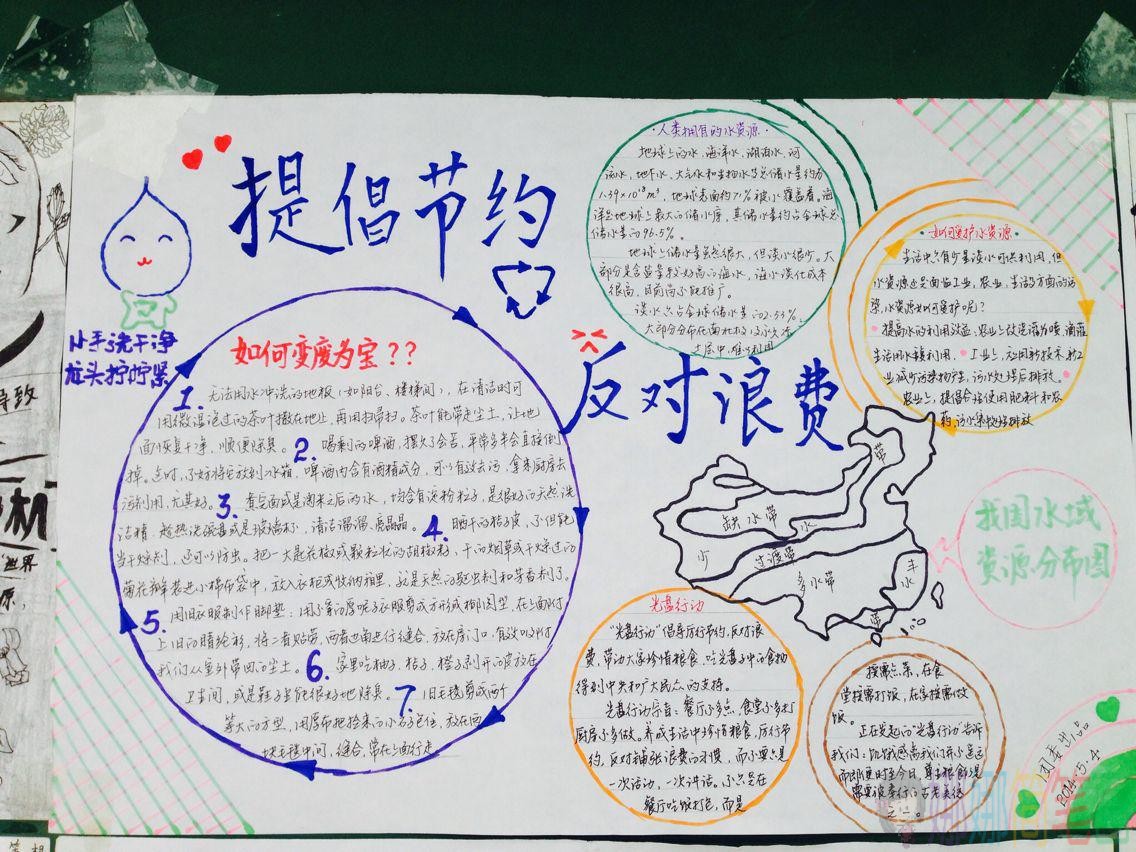 提倡节约
反对浪费
小手洗干净
龙头拧拧紧
如何变废为宝??
1. 无法用水冲洗的地板(如阳台、楼梯间),在清洁时可
用微湿泡过的茶叶撒在地上,再用扫帚扫。茶叶能带走尘土,让地
面恢复干净,顺便除臭。2. 喝剩的啤酒,摆久了会苦,平常多半会直接倒
掉。这时,了好将它放到冰箱,啤酒内含有酒精成分,可以有效去污,拿来厨房去
污利用,尤其好。3. 煮完面或是淘米之后的水,均含有淀粉粒子,是很好的天然洗
洁精,趁热洗碗盘或是玻璃杯,清洁溜溜、亮晶晶。4. 晒干的桔皮,不但能
当干燥剂,还可以防虫。把一大匙花椒或颗粒状的胡椒粒,干的烟草或干燥过的
菊花瓣装进小棉布袋中,放入衣柜或收纳箱里,就是天然的驱虫剂和芳香剂了。
5. 用旧衣服制作脚垫:用了旧的厚呢子衣服剪成方形或椭圆型,在上面附
上旧的腈纶衫,将二者贴劳,两者边角进行缝合,放在房门口,有效吸附
我们从室外带回的尘土。6. 家里吃柚子、桔子、橙子剥开的皮放在
卫生间,或是鞋子里能很好地除臭。7. 旧毛毯剪成两个
等大的方型,用厚布把捡来的小石子包住,放在两
块毛毯中间,缝合,常在上面行走。
·人类拥有的水资源·
地球上的水,海洋水,湖泊水,河
流水,地下水,大气水和生物水等总储水量约为
1.39×10¹⁸m³,地球表面约71%被水覆盖着。海
洋是地球上最大的储水库,其储水量约占全球总
储水量的96.5%。
地球上储水量虽然很大,但淡水很少。大
部分是含盐量较高的海水,海水淡化成本
很高,目前尚不能推广。
淡水只占全球储水量的2.53%,
大部分分布在南北极以冰
土层中,难以利用
·如何爱护水资源·
生活中只有少量淡水可供利用,但
水资源还是面临工业,农业,生活等方面的污
染,水资源如何爱护呢?
提高水的利用效益:农业上改漫灌为喷,滴灌
生活用水重复利用。工业上,应用新技术,新工
业减少污染物产生,污水处理后排放。
农业上,提倡合理使用肥料和农
药,污水集中处理排放
缺水带
少水带
过渡带
多水带
丰水带
我国水域
资源分布图
光盘行动
“光盘行动”倡导厉行节约,反对浪
费,带动大家珍惜粮食,吃光盘子中的食物
得到中央和广大民众的支持。
光盘行动宗旨:餐厅不多点,食堂不多打
厨房不多做。养成生活中珍惜粮食,厉行节
约,反对铺张浪费的习惯,而不要只是
一次活动,一次讲话。不只是在
餐厅吃饭打包,而是
按需点菜,在食
堂按需打饭,在家按需做
饭。
正在发起的“光盘行动”告诉
我们:饥饿感离我们并不遥远
而即便时至今日,尊重粮食仍是
需要被奉行的古老美德
之一。
团委出品
2014.5.4